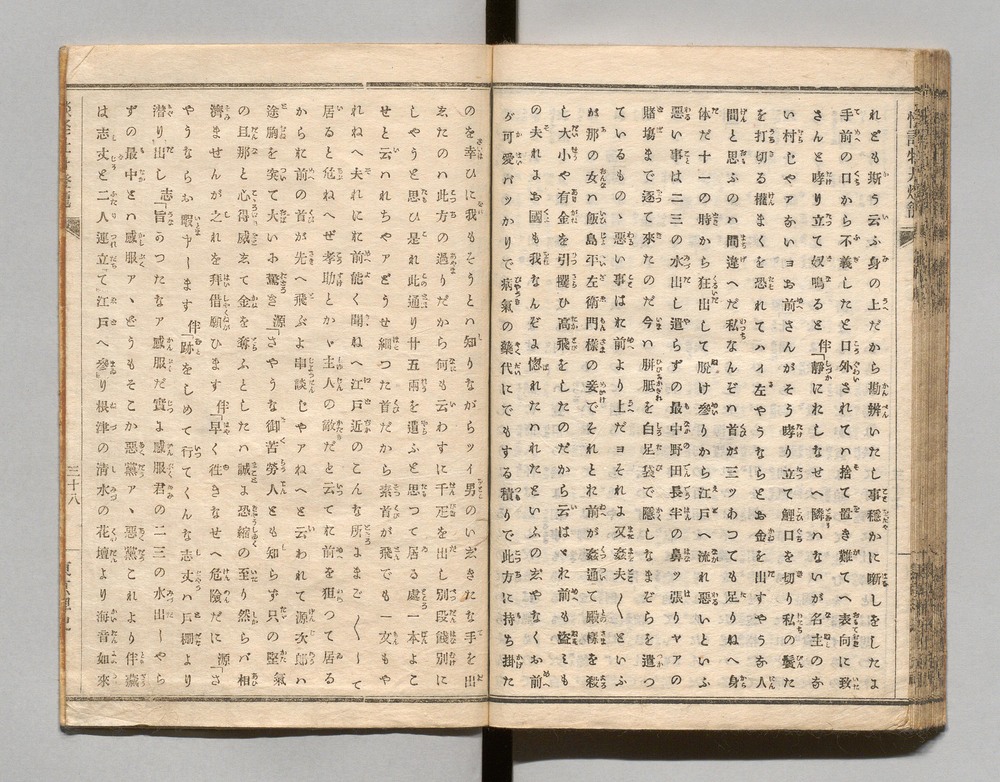 れども斯う云ふ身の上だから勘辨いたし事穩かに噺しをしたよ
手前の口から不義したと口外されてハ捨て置き難てへ表向に致
さんと哮り立て奴鳴ると 伴「靜にれしなせへ隣ハないが名主のな
い村じやアないヨお前さんがそう哮り立て鯉口を切り私の鬢た
を打切る權まくを恐れてハイ左やうならとお金を出すやうな人
間と思ふのハ間違へだ私なんぞハ首が三ツわつても足りねへ身
体だ十一の時から狂出して脱け參りから江戸へ流れ惡いといふ
惡い事は二三の水出し遣らずの最中野田長半の鼻ッ張りヤアの
賭塲まで逐て來たのだ今ハ胼胝を白足袋で隱しなまぞらを遣つ
ているものゝ惡い事はれ前より上だヨそれよ又姦夫〳〵といふ
が那の女ハ飯島平左衛門樣の妾でそれとれ前が姦通て殿樣を殺
し大小や有金を引攫ひ高飛をしたのだから云はゞれ前も盜もし
の夫れよお國も我なんぞよ惚れたハれたといふの玄やなくお前
が可愛バッかりで病氣の藥代にでもする積りで此方に持ち掛た
のを幸ひに我もそうとハ知りながらツイ男のい玄きたなな手を出
ゑたのハ此方の過りだから何も云わずに千疋を出し別段餞別に
しやうと思ひ是れ此通り廿五兩を遣ふと思つて居る處一本よこ
せと云ハれちやアどうせ細つた首だから素首が飛でも一文もや
れねへ夫れにれ前能く聞ねへ江戸近のこんな所よまご〳〵して
居ると危ねへぜ孝助とかゞ主人の敵だと云てれ前を狙つて居る
かられ前の首が先へ飛ぶよ串談じやアねへと云われて源次郎ハ
途胸を突て大いお驚き 源「さやうな御苦勞人とも知らず只の堅氣
の旦那と心得威ゑて金を奪ふとしたハ誠よ恐縮の至り然らバ相
濟ませんが之れを拜借願ひます 伴「早く徃きなせへ危險だに 源「さ
やうならお暇申します 伴「跡をしめて行てくんな志丈ハ戸棚より
潜り出し 志「旨のつたなア感服だ實よ感服君の二三の水出しやら
ずの最中とハ感服アゝどうもそこが惡黨アゝ惡黨これより伴藏
は志丈と二人連立て江戸へ參り根津の清水の花壇より海音如來
三十八